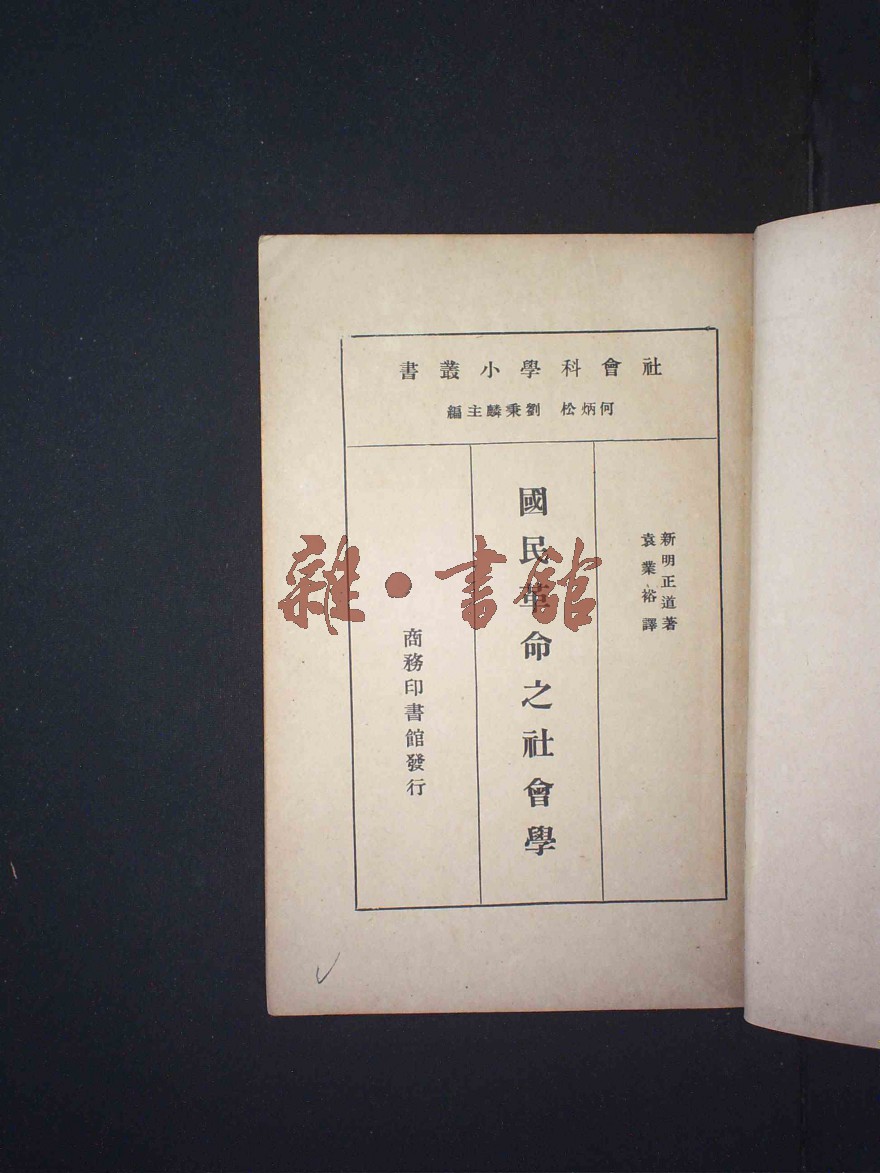 社會科學小叢書
何炳松 劉秉麟主編
新明正道著
袁業裕譯
國民革命之社會學
商務印書館發行
雜·書館